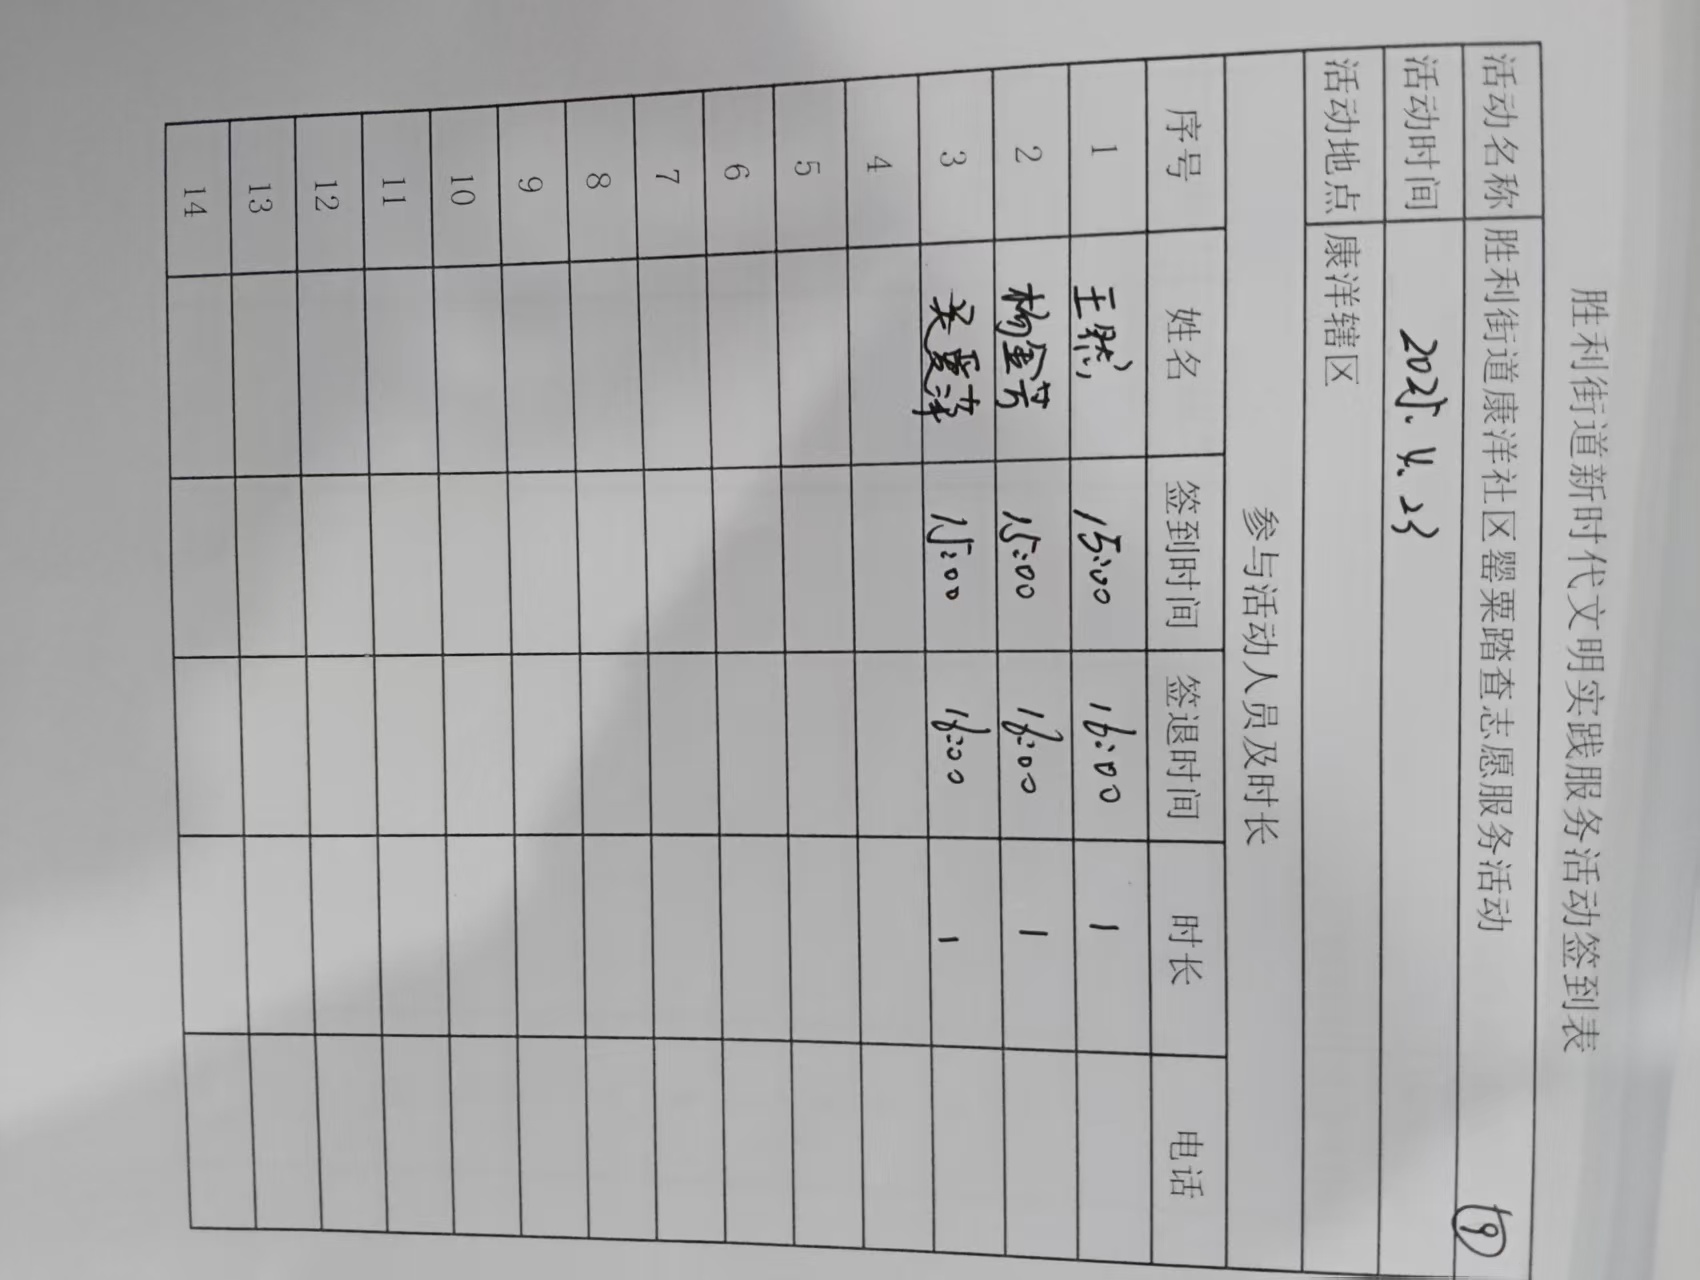 胜利街道新时代文明实践服务活动签到表
活动名称 胜利街道康洋社区罂粟踏查志愿服务活动 19
活动时间 2025.4.23
活动地点 康洋辖区
参与活动人员及时长
序号 姓名 签到时间 签退时间 时长 电话
1 王熙 15:00 16:00 1
2 杨金芳 15:00 16:00 1
3 15:00 16:00 1
4
5
6
7
8
9
10
11
12
13
14